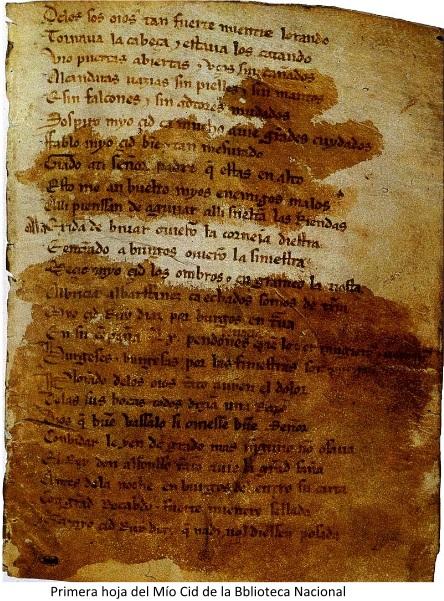 Delos sos oios tan fuerte mientre lorando
Tornaua la cabeça τ estaua los catando
Vio puertas abiertas τ vços sin cañados
Alcandaras uazias sin pielles τ sin mantos
E sin falcones τ sin adtores mudados
Sospiro myo çid ca mucho auie grãdes cuydados
Fablo myo çid biẽ τ tan mesurado
Grado ati señor padre q̃ estas en alto
Esto me an buelto myos enemigos malos
Alli pienssan de aguiiar alli sueltan las Riendas
Ala Exida de biuar ouierõ la corneia diestra
E entrãdo a burgos ouierõ la siniestra
Meçio myo çid los ombros τ en grameo la tiesta
Albricia albarffanez ca echados somos de trra
Myo çid Ruy diaz por burgos en traua
En su cõpaña pendones
Burgeses τ burgesas por las finiestras son
Plorando delos oios tãto auyen el dolor
Delas sus bocas todos dizian una Razon
Dios q̃ buẽ vassalo si ouiesse buẽ Señor
Conbidar le yen de grado mas ninguno no osaua
El Rey don alfonsso tãto auie la grãd saña
Antes dela noche en burgos del entro su carta
Con grãd Recabdo τ fuerte mientre sellada
Que a myo çid Ruy diaz q̃ nadi nol diessen posada
Primera hoja del Mío Cid de la Bblioteca Nacional